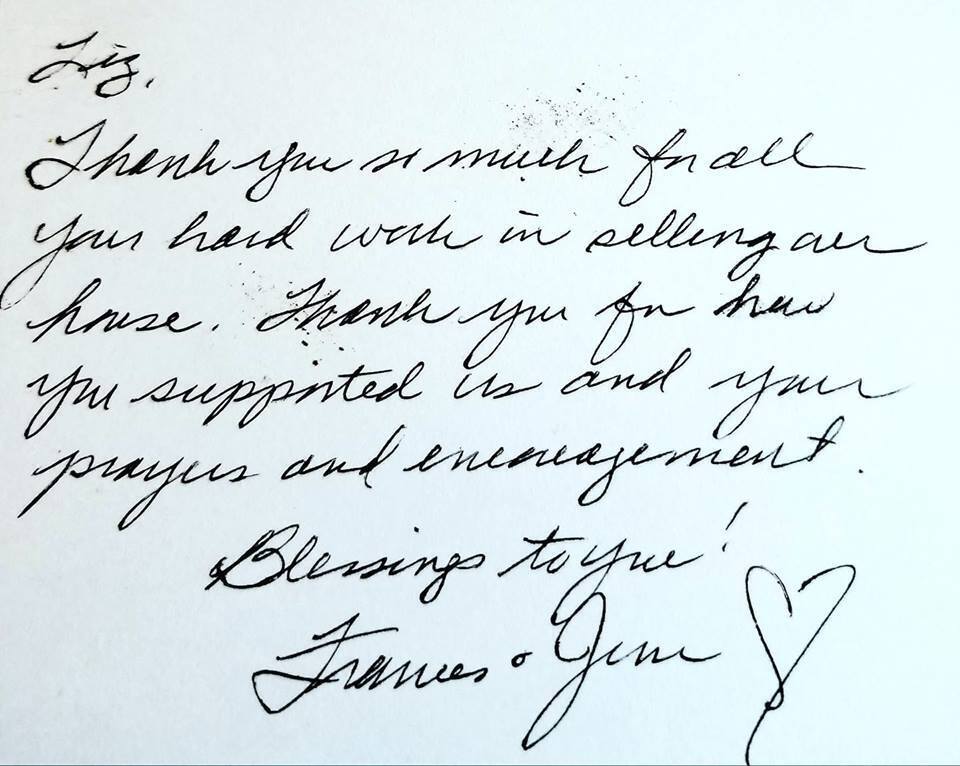 Liz,
Thank you so much for all
your hard work in selling our
house. Thank you for how
you supported us and your
prayers and encouragement.
Blessings to you!
Frances &